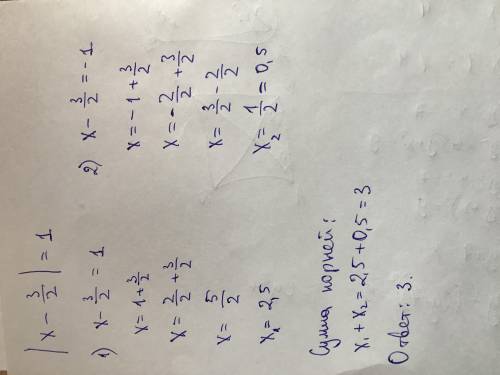 | x - 3/2 | = 1
1) x - 3/2 = 1
x = 1 + 3/2
x = 2/2 + 3/2
x = 5/2
x₁ = 2,5
2) x - 3/2 = -1
x = -1 + 3/2
x = -2/2 + 3/2
x = 3/2 - 2/2
x₂ = 1/2 = 0,5
Сумма корней:
x₁ + x₂ = 2,5 + 0,5 = 3
Ответ: 3.